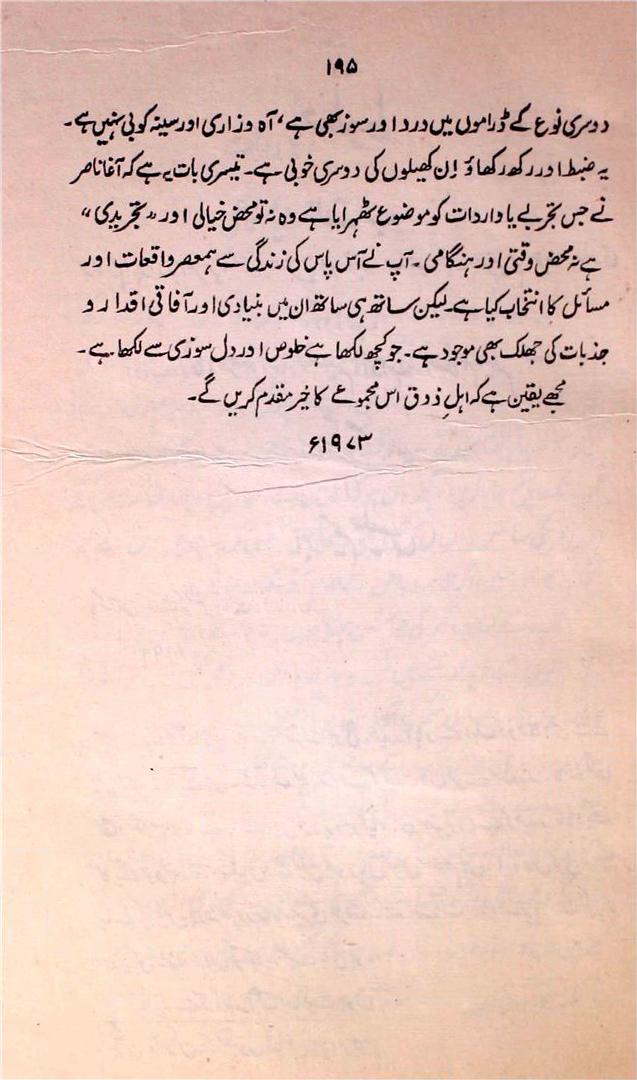 ۱۹۵
دوسری نوع کے ڈراموں میں درد اور سوز بھی ہے، آہ و زاری اور سینہ کوبی نہیں ہے۔
یہ ضبط اور رکھ رکھاؤ اِن کھیلوں کی دوسری خوبی ہے۔ تیسری بات یہ ہے کہ آغا ناصر
نے جس تجربے یا واردات کو موضوع ٹھہرایا ہے وہ نہ تو محض خیالی اور "تجریدی"
ہے نہ محض وقتی اور ہنگامی۔ آپ نے آس پاس کی زندگی سے ہمعصر واقعات اور
مسائل کا انتخاب کیا ہے۔ لیکن ساتھ ہی ساتھ ان میں بنیادی اور آفاقی اقدار و
جذبات کی جھلک بھی موجود ہے۔ جو کچھ لکھا ہے خلوص اور دل سوزی سے لکھا ہے۔
مجھے یقین ہے کہ اہلِ ذوق اس مجموعے کا خیر مقدم کریں گے۔
۱۹۷۳ء